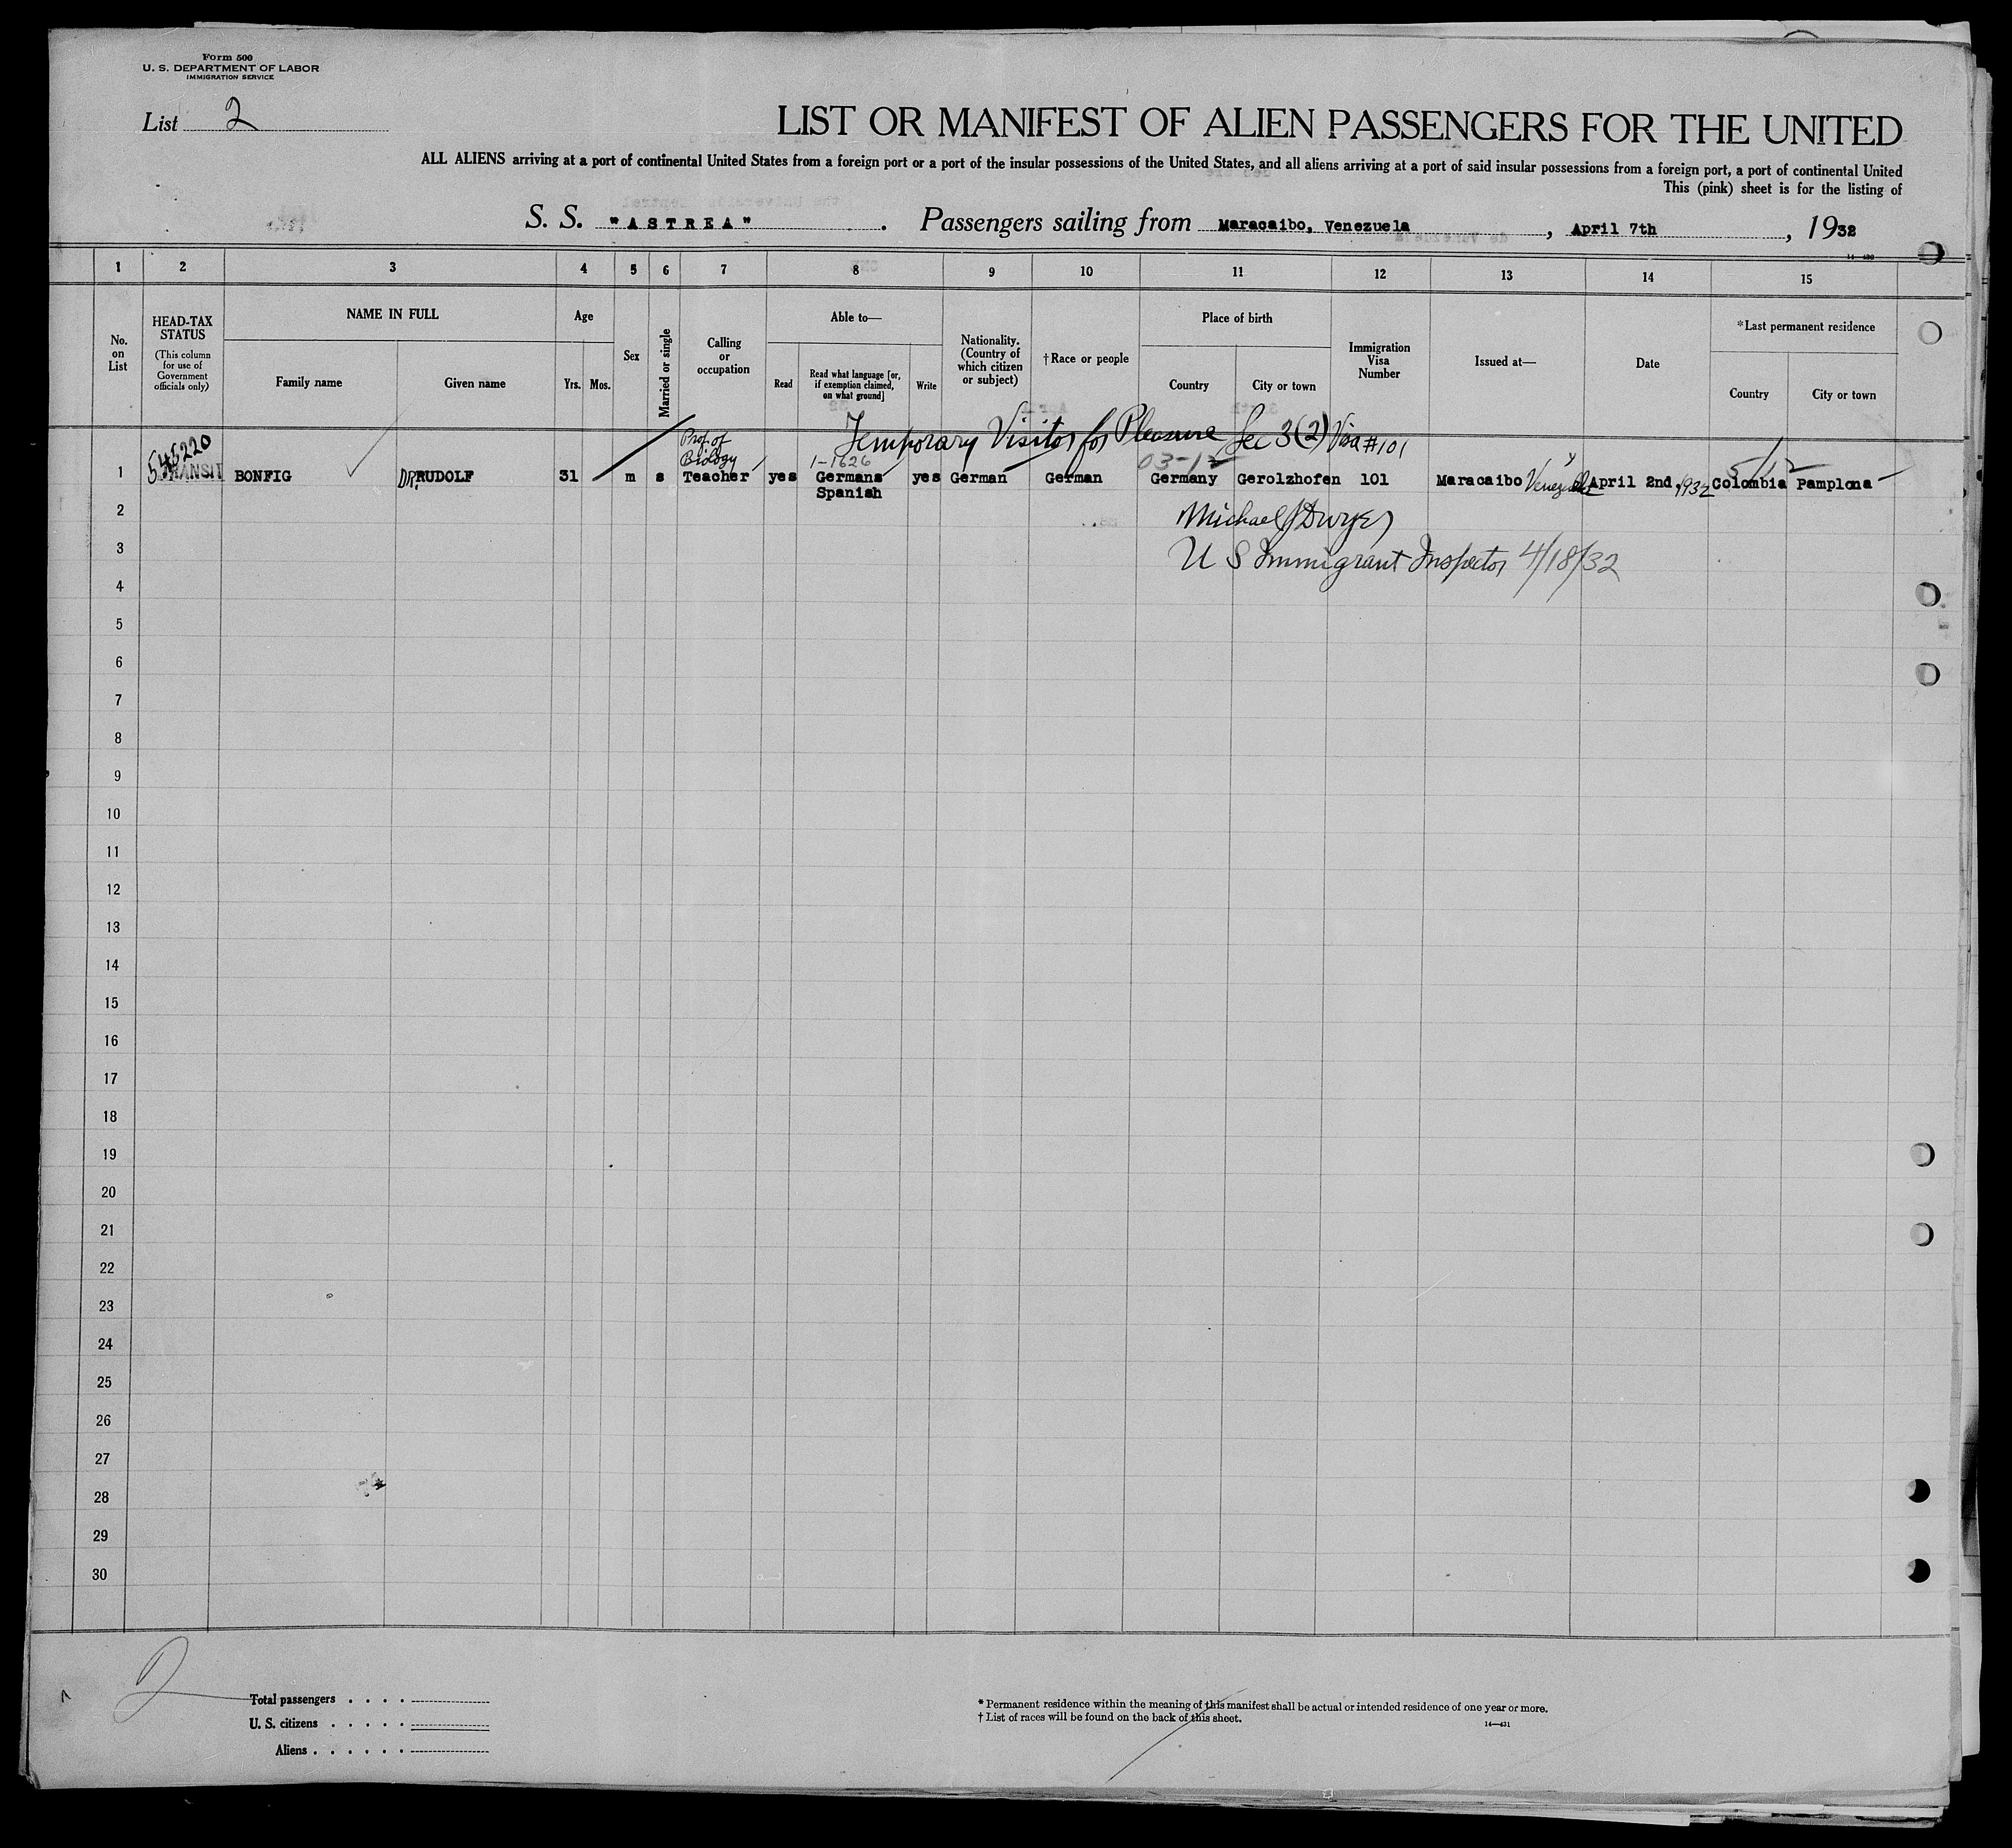 Form 500
U. S. DEPARTMENT OF LABOR
IMMIGRATION SERVICE
List 2
LIST OR MANIFEST OF ALIEN PASSENGERS FOR THE UNITED
ALL ALIENS arriving at a port of continental United States from a foreign port or a port of the insular possessions of the United States, and all aliens arriving at a port of said insular possessions from a foreign port, a port of continental United
This (pink) sheet is for the listing of
S. S. "ASTREA" . Passengers sailing from Maracaibo, Venezuela , April 7th , 1932
14—430
1 2 3 4 5 6 7 8 9 10 11 12 13 14 15
No. on List
HEAD-TAX STATUS
(This column for use of Government officials only)
NAME IN FULL
Family name
Given name
Age
Yrs. Mos.
Sex
Married or single
Calling or occupation
Able to—
Read
Read what language [or, if exemption claimed, on what ground]
Write
Nationality. (Country of which citizen or subject)
†Race or people
Place of birth
Country
City or town
Immigration Visa Number
Issued at—
Date
*Last permanent residence
Country
City or town
Temporary Visitor for Pleasure Sec 3(2) Visa #101
545220
Prof. of Biology
1-1626
03-12
5/12
1 TRANSIT BONFIG DR. RUDOLF 31 m s Teacher yes Germans yes German German Germany Gerolzhofen 101 Maracaibo Venezuela April 2nd, 1932 Colombia Pamplona
Spanish
2 Michael J Dwyer
3 U S Immigrant Inspector 4/18/32
4
5
6
7
8
9
10
11
12
13
14
15
16
17
18
19
20
21
22
23
24
25
26
27
28
29
30
2
Total passengers . . . .
U. S. citizens . . . . .
Aliens . . . . . .
* Permanent residence within the meaning of this manifest shall be actual or intended residence of one year or more.
† List of races will be found on the back of this sheet.
14—431